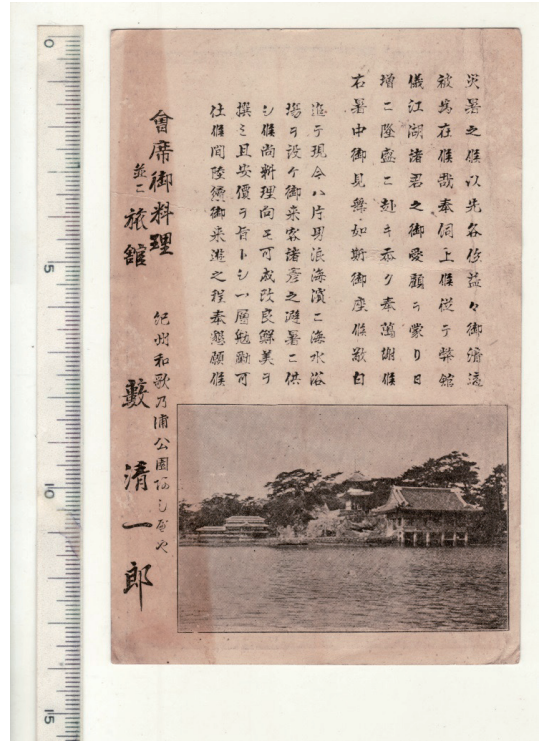 炎暑之候以先各位益々御清適
被為在候哉奉伺上候従テ弊館
儀江湖諸君之御愛顧ヲ蒙リ日
増ニ隆盛ニ赴キ忝ク奉萬謝候
右暑中御見舞如斯御座候敬白
追テ現今ハ片男浪海濱ニ海水浴
場ヲ設ケ御来客諸彦之避暑ニ供
シ候尚料理向モ可成改良鮮美ヲ
撰ミ且安價ヲ旨トシ一層勉勵可
仕候間陸續御来遊之程奉懇願候
會席御料理
並ニ旅舘
紀州和歌乃浦公園
藪清一郎
0
5
10
15